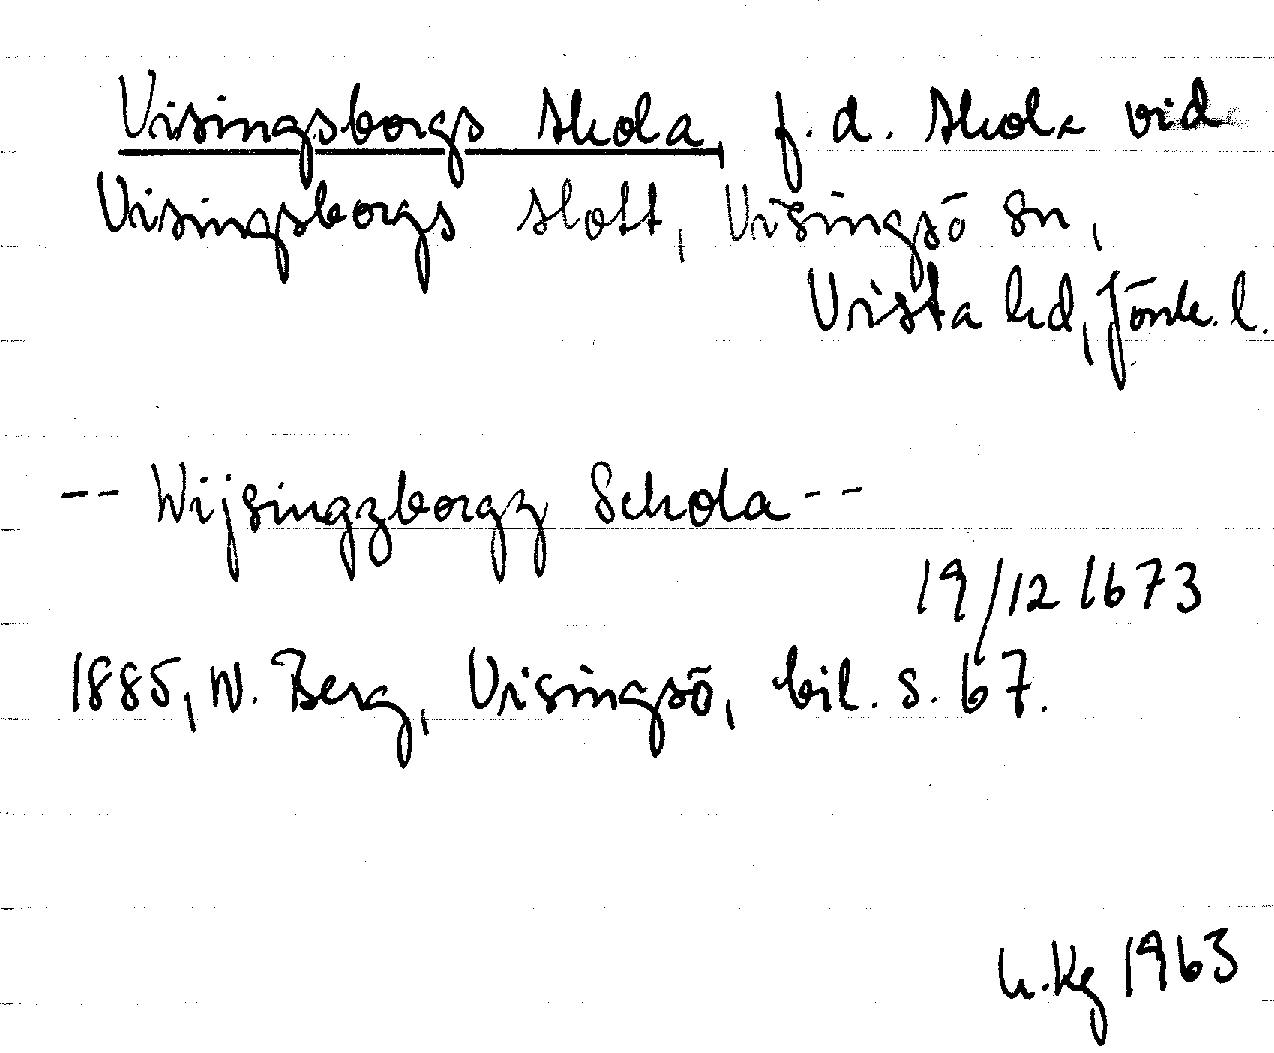 Visingsborgs skola, f.d. skola vid
Visingsborgs slott, Visingsö sn,
Vista hd, Jönk. l.
-- Wijsingzborgz Schola --
19/12 1673
1885, W. Berg, Visingsö, bil. s. 67.
h.Kg 1963